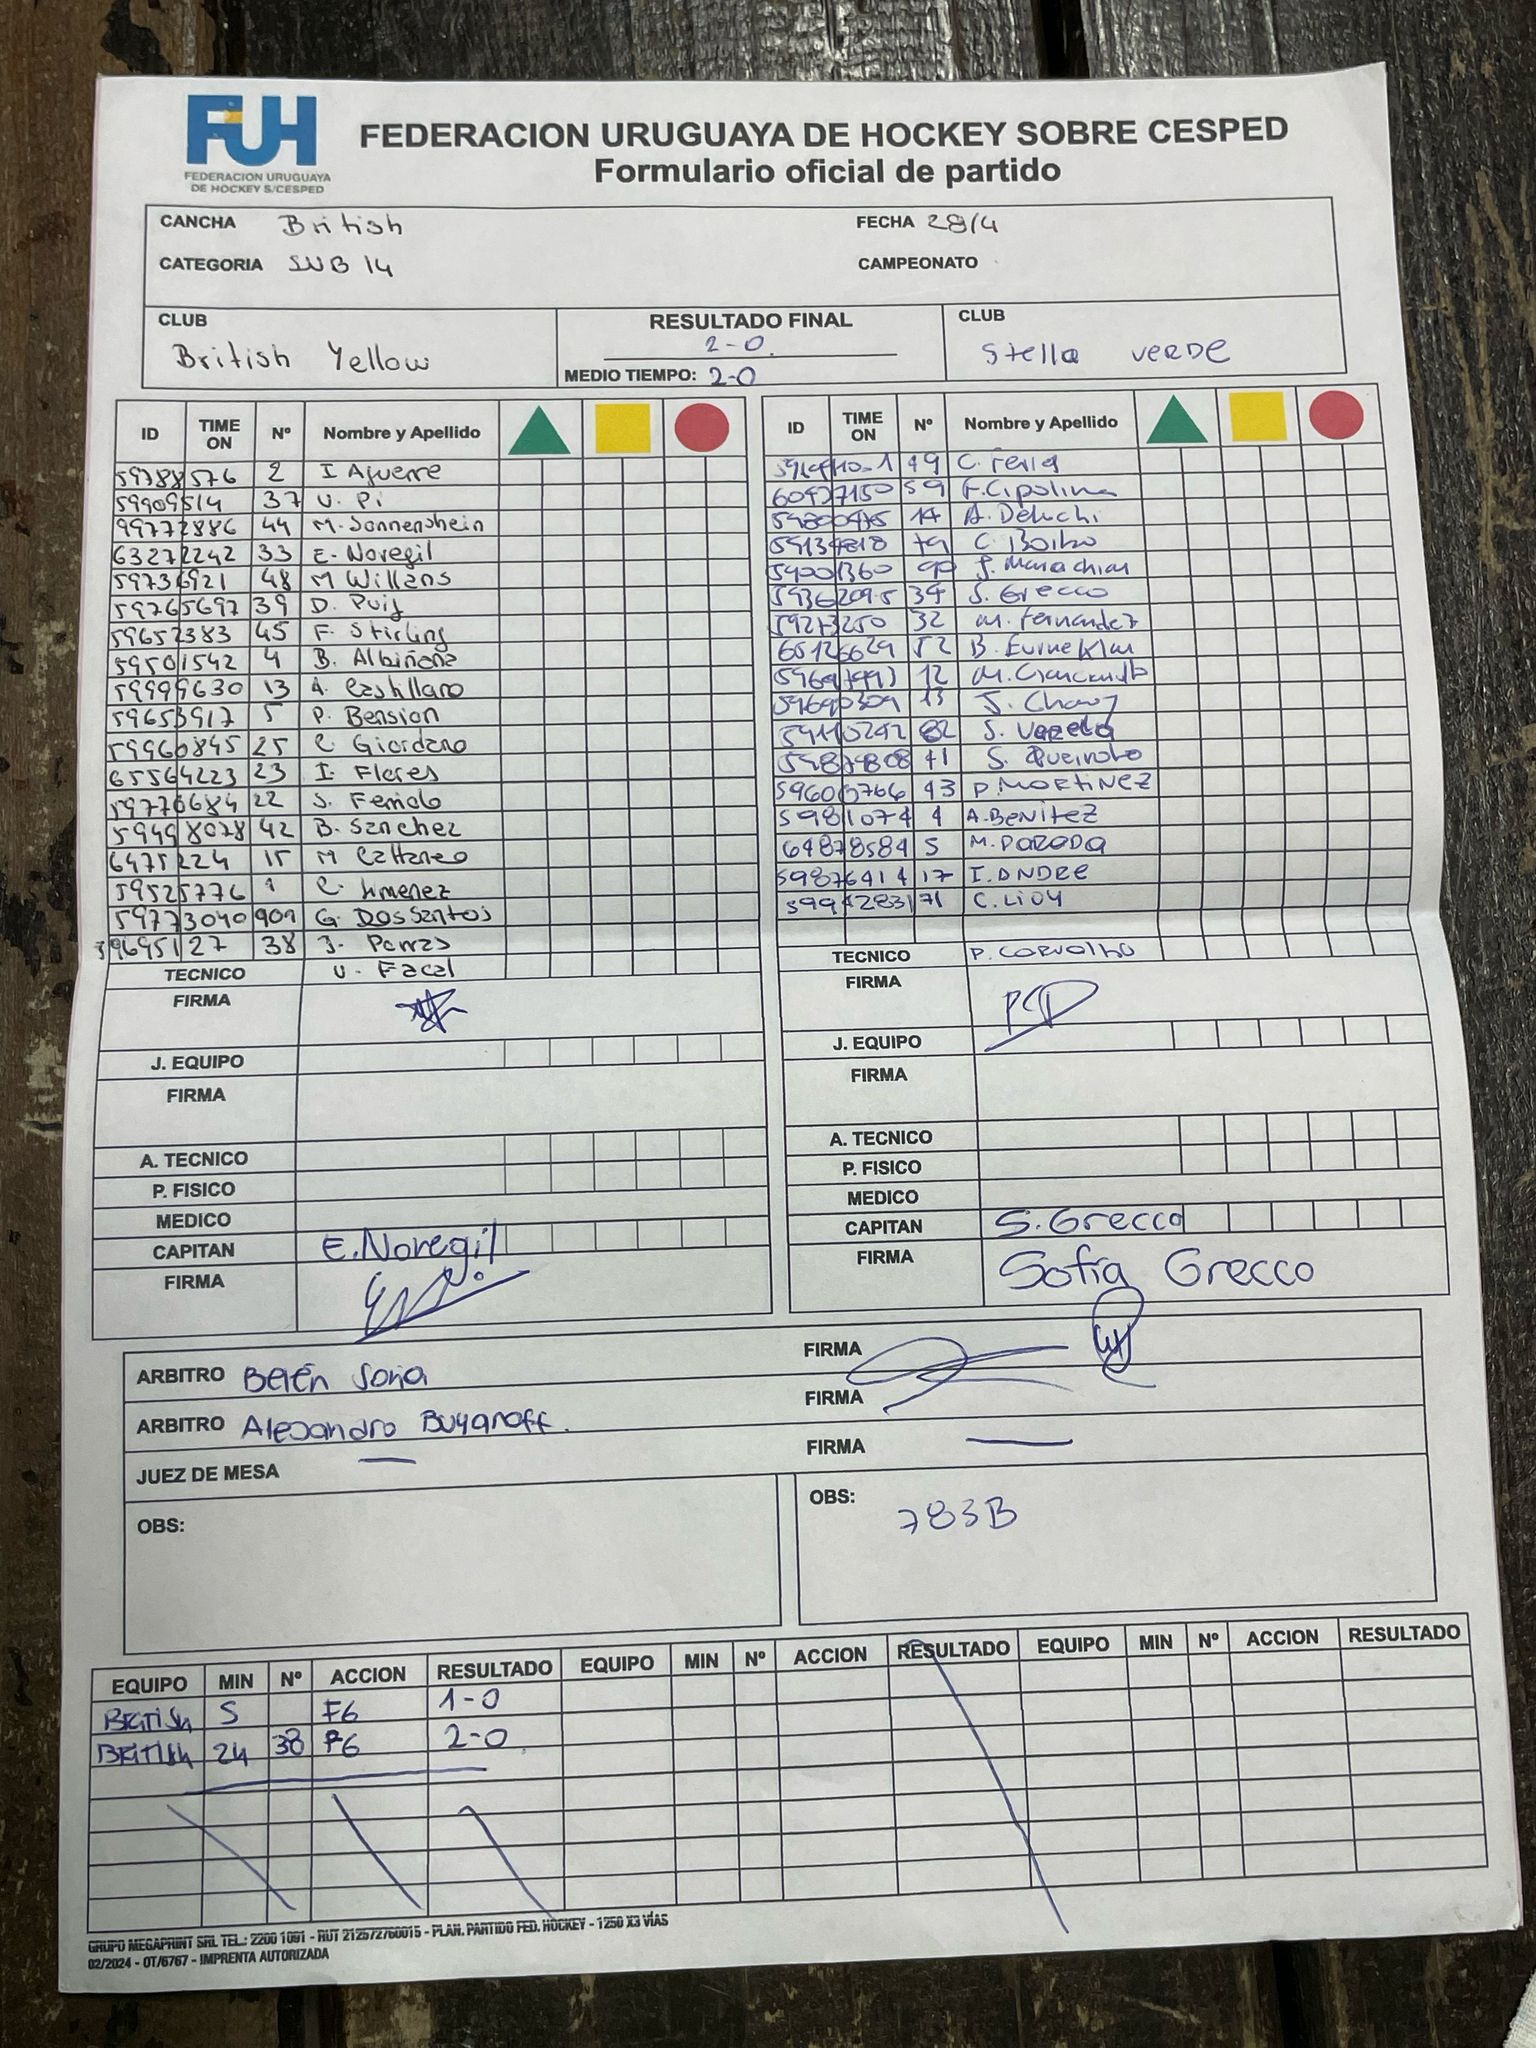 FUH
FEDERACION URUGUAYA
DE HOCKEY S/CESPED
FEDERACION URUGUAYA DE HOCKEY SOBRE CESPED
Formulario oficial de partido
CANCHA British FECHA 28/4
CATEGORIA SUB 14 CAMPEONATO
CLUB British Yellow
RESULTADO FINAL 2-0.
MEDIO TIEMPO: 2-0
CLUB Stella VERDE
ID TIME ON Nº Nombre y Apellido
59788576 2 I Aguerre
59909514 37 U. Pi
99772886 44 M. Sonnenshein
63272242 33 E. Noregil
59736921 48 M Willans
59765697 39 D. Puig
59652383 45 F. Stirling
59501542 4 B. Albiñana
59999630 13 A. Castillaro
59653917 5 P. Bension
59960845 25 C. Giordano
65564223 23 I. Flores
59770684 22 S. Ferrido
59498078 42 B. Sanchez
6475224 15 M Cattaneo
59525776 1 C. Jimenez
59773040 909 G. DosSantos
59695127 38 J. Porras
TECNICO U. Facal
FIRMA
J. EQUIPO
FIRMA
A. TECNICO
P. FISICO
MEDICO
CAPITAN E. Noregil
FIRMA
ID TIME ON Nº Nombre y Apellido
49 C. Feria
60927150 59 F. Cipolina
59800475 14 A. Deluchi
59134818 79 C.
59001360 90
59362095 34 S. Grecco
59273250 32 M. Fernandez
60126629 52 B.
12 M.
59690309 13 J. Chavz
59110292 82 S. Varela
59879808 71 S. Queirolo
59600766 43 P. MORTINEZ
59811074 4 A. BENITEZ
64878584 5 M. PARADA
59876414 17 I. ANDRE
59942831 71 C. LIOY
TECNICO P. CORVALHO
FIRMA
J. EQUIPO
FIRMA
A. TECNICO
P. FISICO
MEDICO
CAPITAN S. Grecco
FIRMA Sofia Grecco
ARBITRO Belén Soria FIRMA
ARBITRO Alejandro Buyanoff. FIRMA
JUEZ DE MESA — FIRMA —
OBS:
OBS: 783B
EQUIPO MIN Nº ACCION RESULTADO EQUIPO MIN Nº ACCION RESULTADO EQUIPO MIN Nº ACCION RESULTADO
BRITISH 5 FG 1-0
BRITISH 24 38 FG 2-0
GRUPO MEGAPRINT SRL TEL.: 2200 1091 - RUT 212572760015 - PLAN. PARTIDO FED. HOCKEY - 1250 X3 VÍAS
02/2024 - OT/6767 - IMPRENTA AUTORIZADA